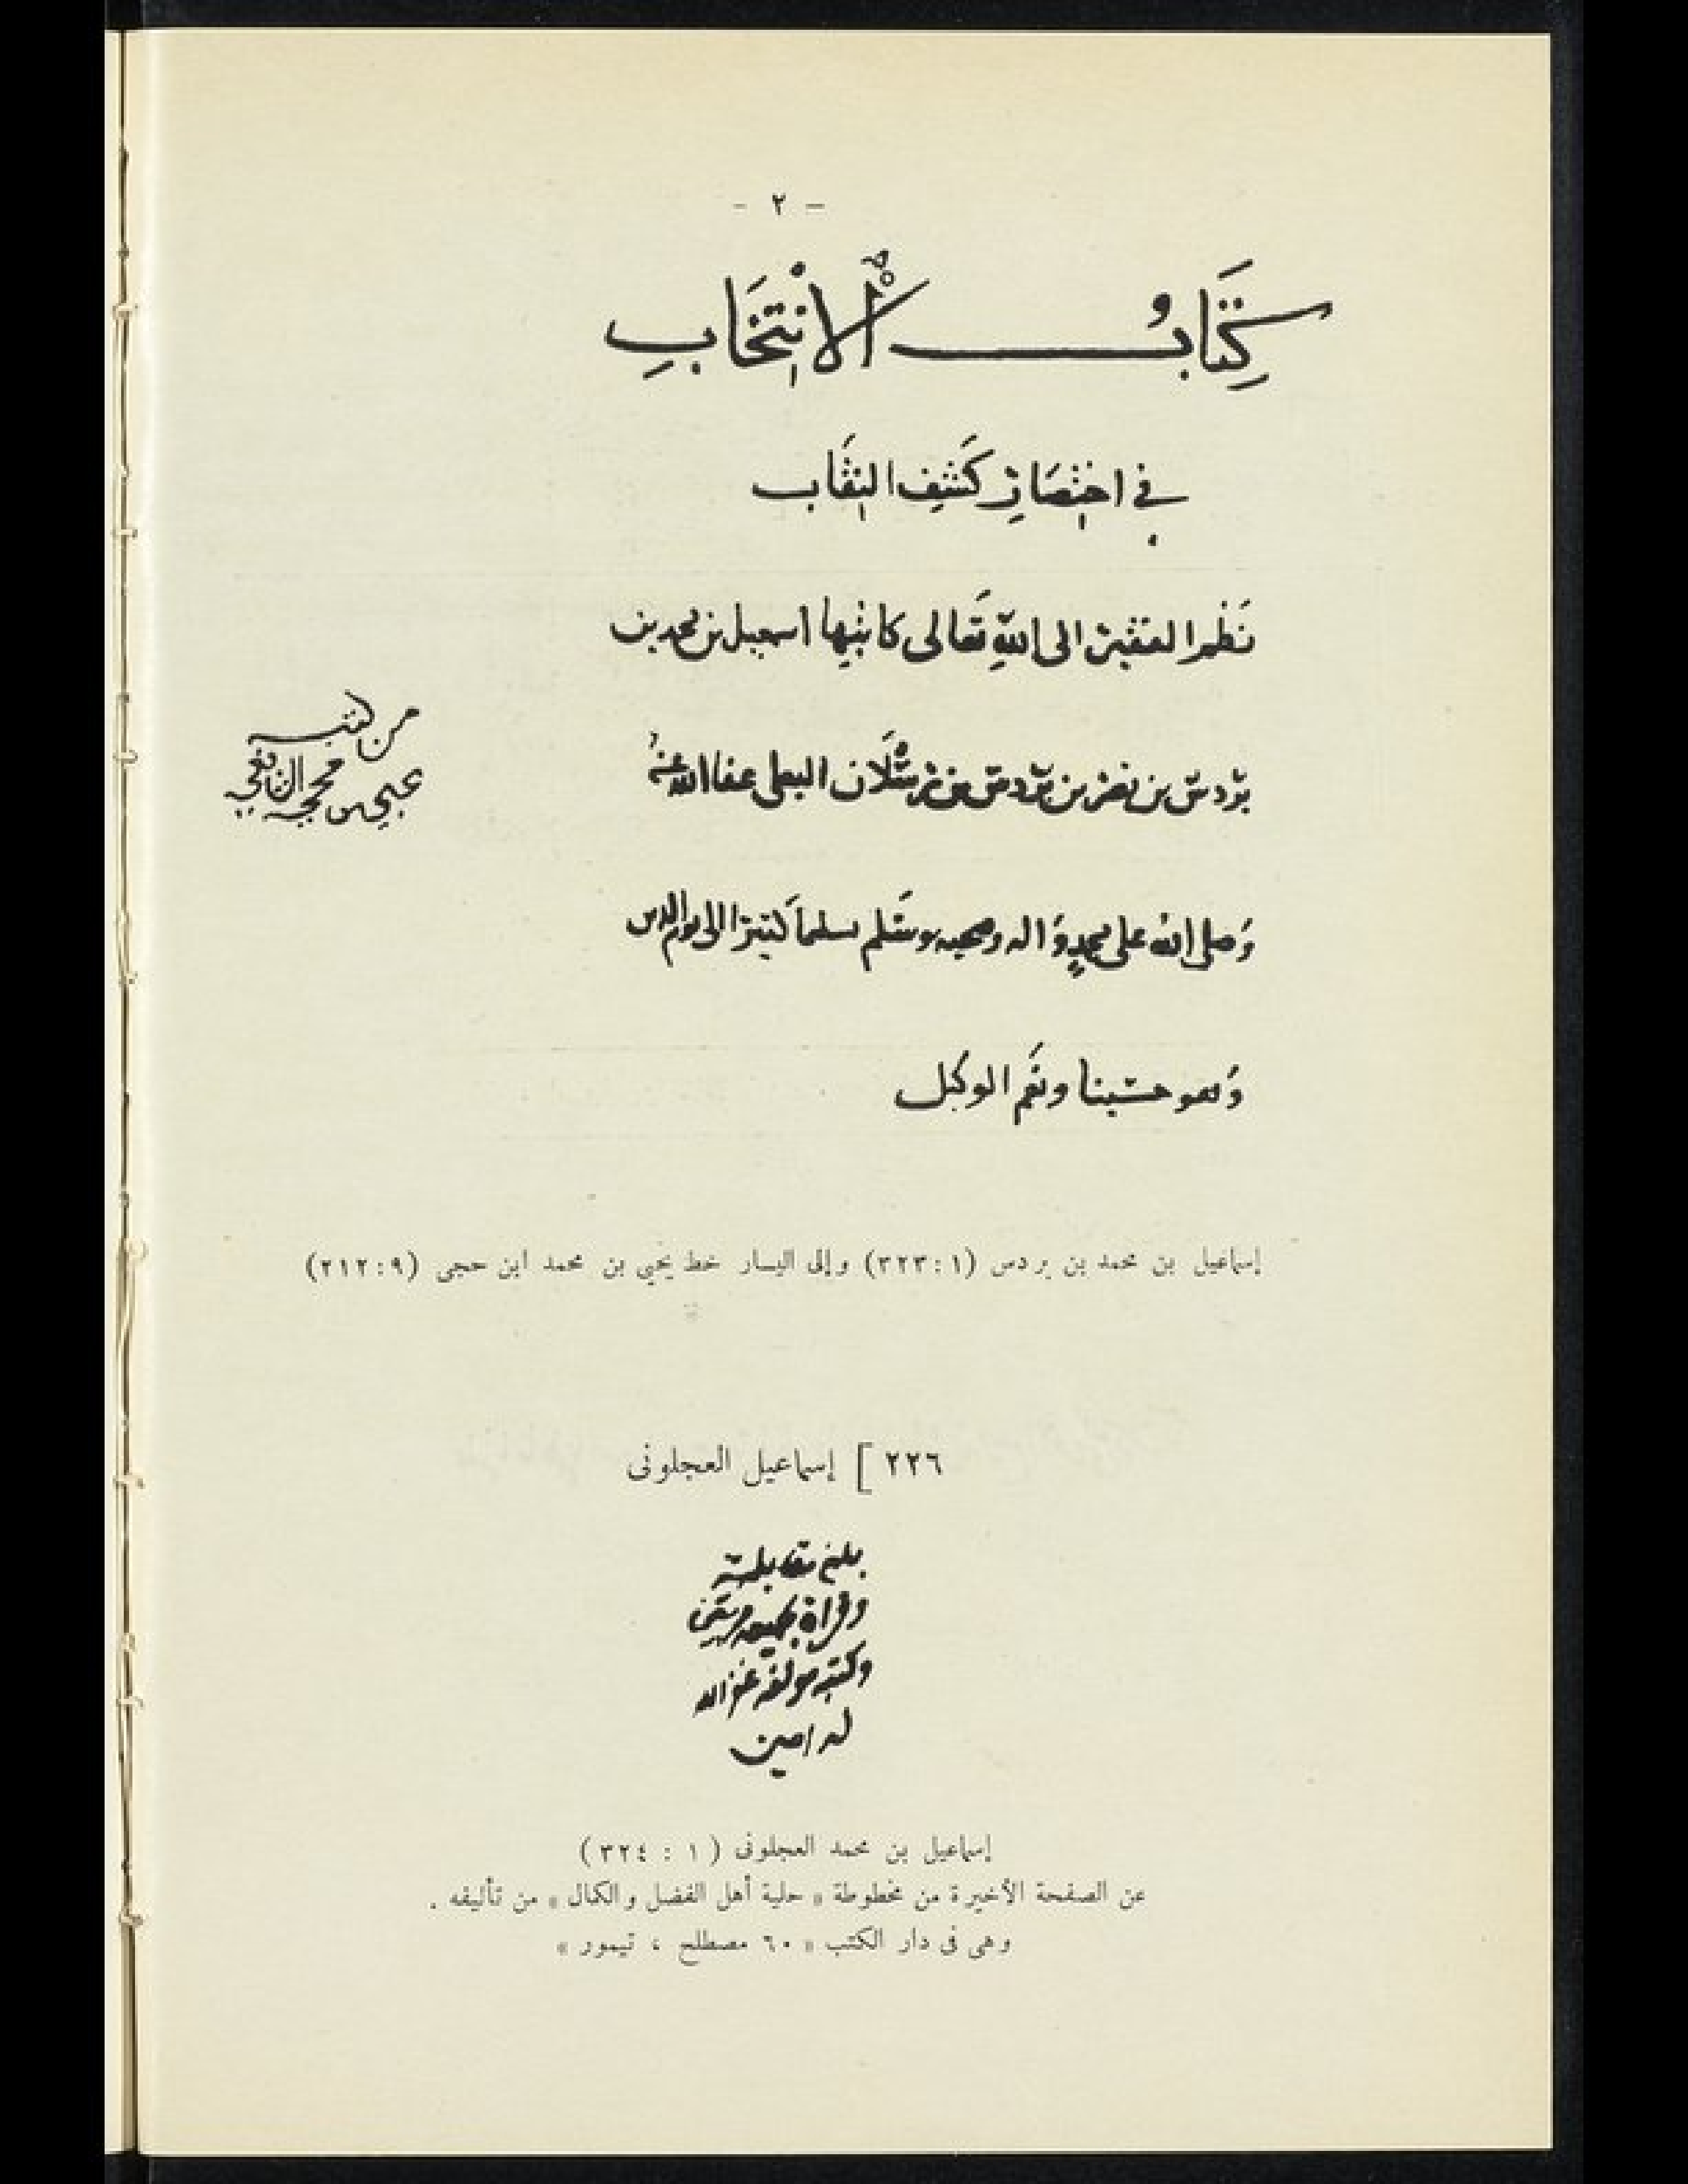 – ٢ –
كِتَابُ الْانْتِخَابِ
في اخْتِصَارِ كَشْفِ النِقَاب
نَظْمُ الفقير الى اللهِ تَعَالى كاتبِها اسمعيل بن محمد بن
بَرْدس بن نصر بن بَرْدس بن رَسْلَان البعلى عفا الله عنهُ
وَصلى الله على محمدٍ وَاله وصحبه وسَلم تسليما كَثيرا الى يوم الدين
وَهو حسْبنا ونعَم الوكيل
من كتب
يحيى بن حجي الشافعي
إسماعيل بن محمد بن بردس (١ : ٣٢٣) وإلى اليسار خط يحيى بن محمد ابن حجى (٩ : ٢١٢)
٢٢٦ ] إسماعيل العجلونى
بلغ مقابلة
وقراة جميعه مرتين
وكتبه مولفه غفر الله
له امين
إسماعيل بن محمد العجلونى ( ١ : ٣٢٤ )
عن الصفحة الأخيرة من مخطوطة « حلية أهل الفضل والكمال » من تأليفه .
وهى فى دار الكتب « ٦٠ مصطلح ، تيمور »